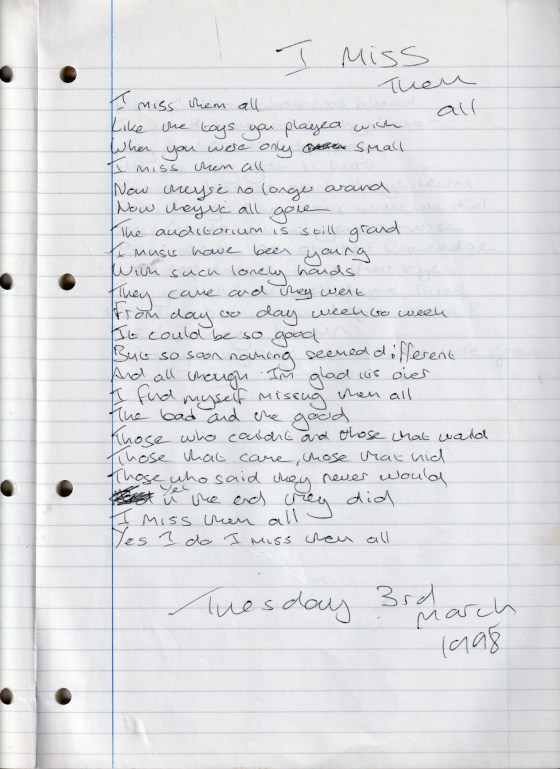 I MISS
Them
all
I miss them all
Like the toys you played with
When you were only small
I miss them all
Now they're no longer around
Now they're all gone
The auditorium is still grand
I must have been young
With such lonely hands
They came and they went
From day to day week to week
It could be so good
But so soon nothing seemed different
And all though I'm glad it's over
I find myself missing them all
The bad and the good
Those who couldn't and those that would
Those that came, those that hid
Those who said they never would
yet
in the end they did
I miss them all
Yes I do I miss them all
Tuesday 3rd
March
1998